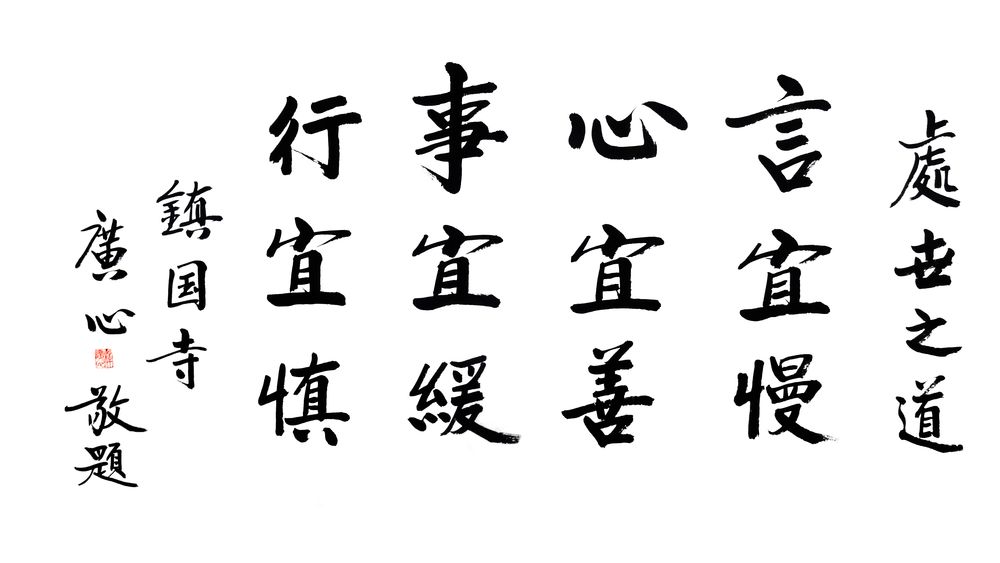 處世之道
言宜慢
心宜善
事宜緩
行宜慎
鎮国寺
廣心敬題